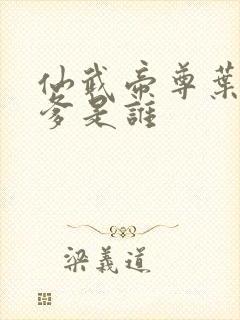 仙武帝尊葉
爹是誰
梁義道